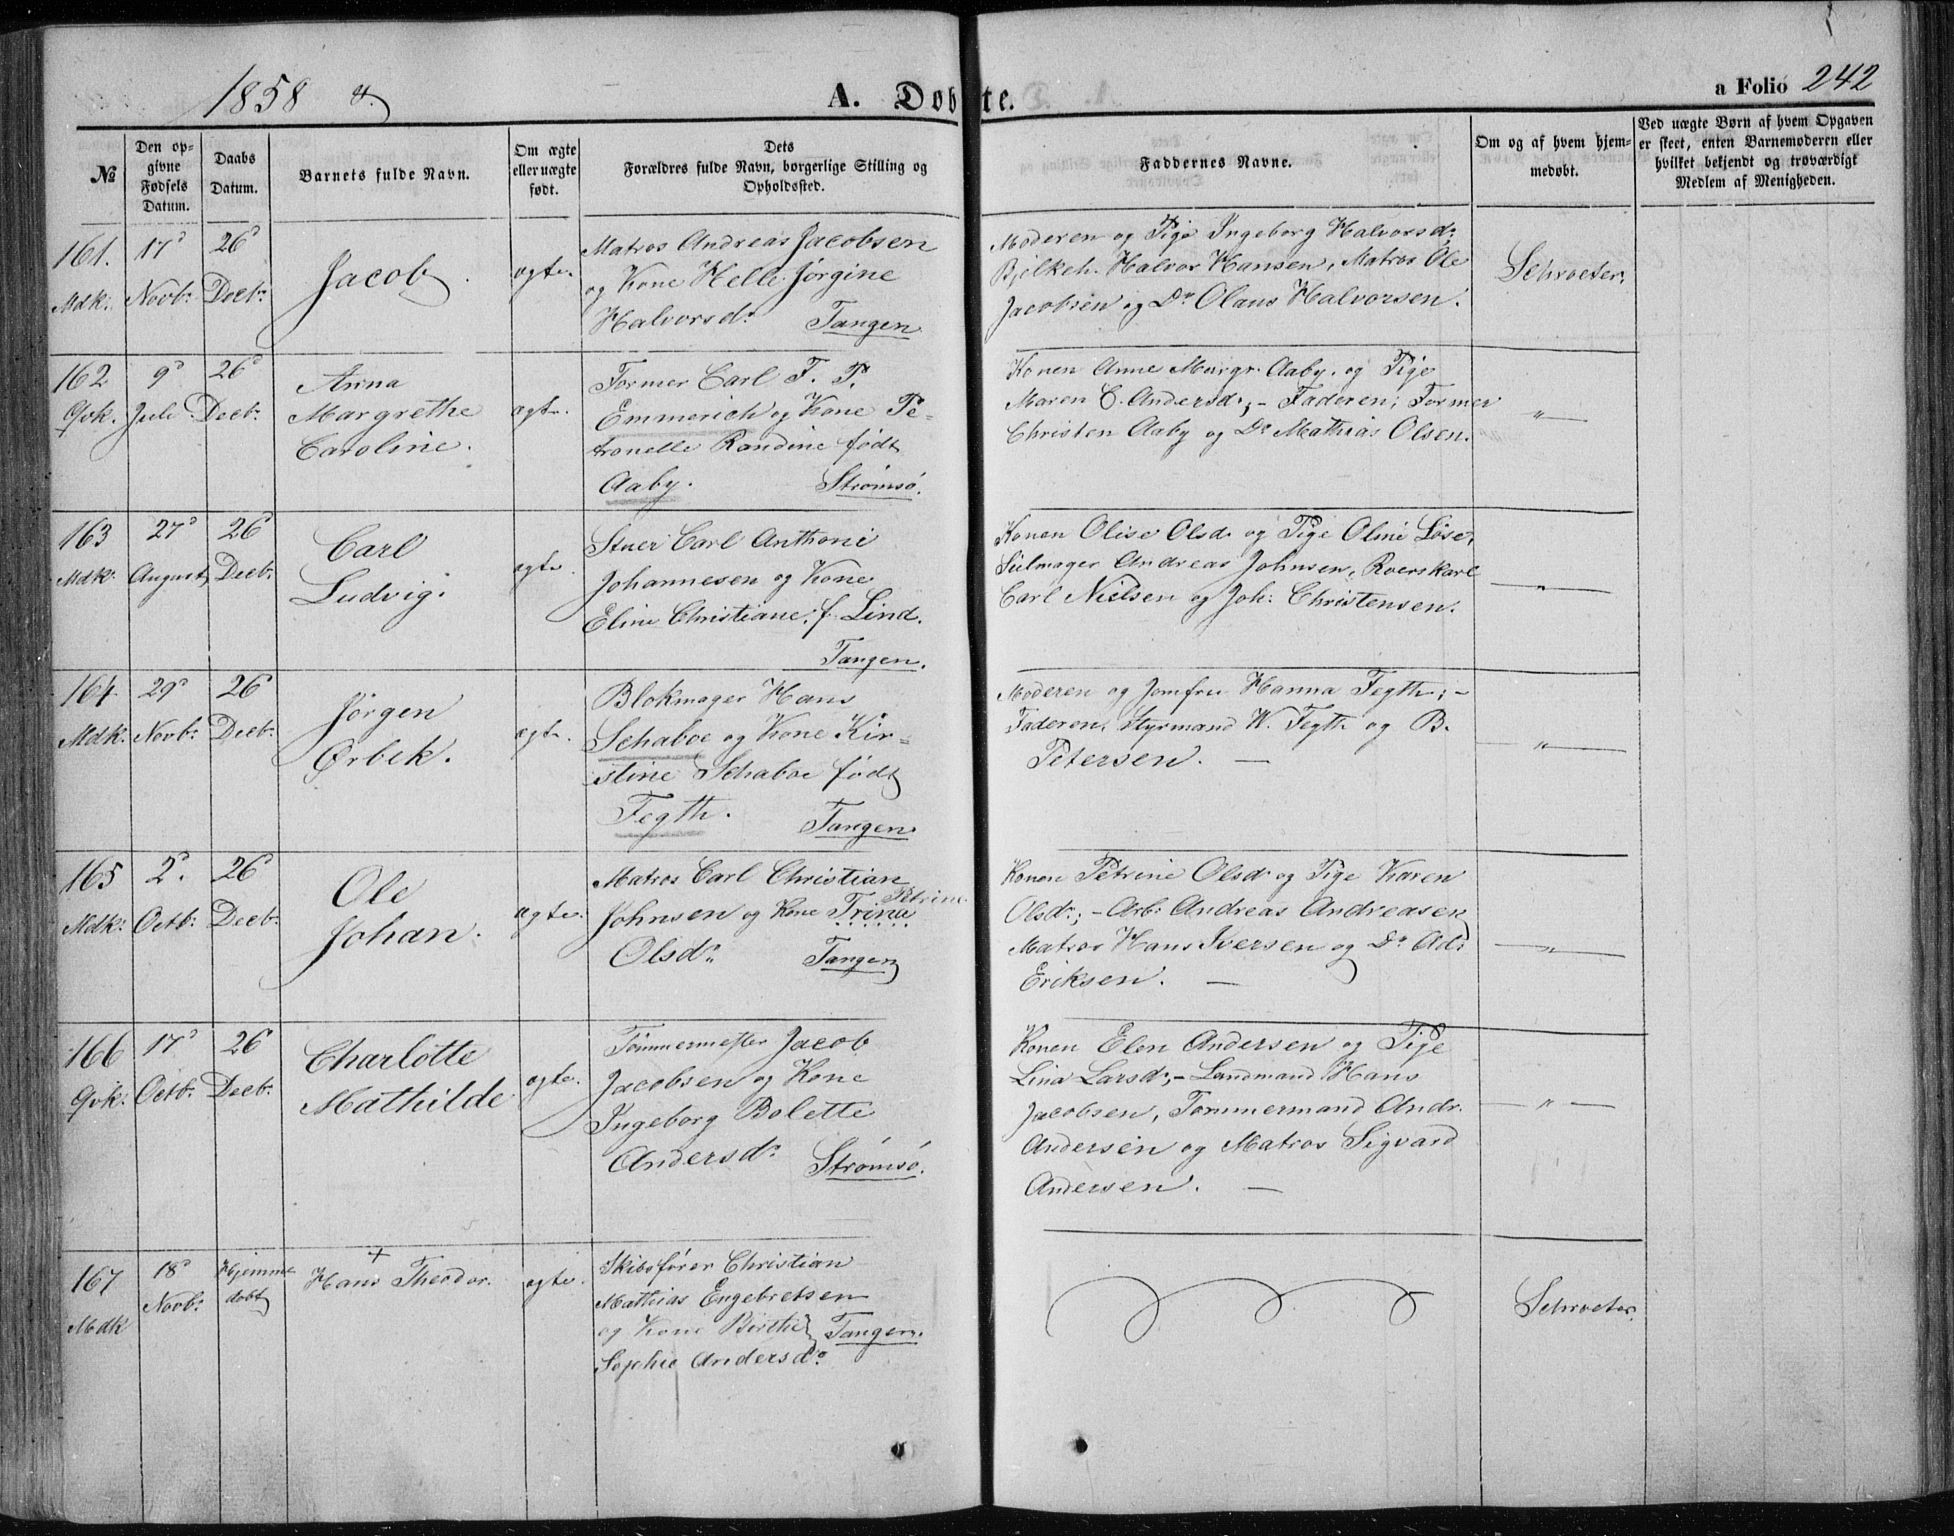 1858
A. Døbte.
a Folio 242
№
Den opgivne Fødsels Datum.
Daabs Datum.
Barnets fulde Navn.
Om ægte eller uægte født.
Dets Forældres fulde Navn, borgerlige Stilling og Opholdssted.
Faddernes Navne.
Om og af hvem hjemmedøbt.
Ved uægte Børn af hvem Opgaven er skeet, enten Barnemoderen eller hvilket bekjendt og troværdigt Medlem af Menigheden.
161. Mdk. 17d Novbr. 26d Decbr.
Jacob
ægte.
Matros Andreas Jacobsen
og Kone Helle Jørgine
Halvorsdr. Tangen
Moderen og Pige Ingeborg Halvorsdr.
Bjelkeh. Halvor Hansen, Matros Ole
Jacobsen og Do Olaus Halvorsen.
Schroeter.
162 Qvk. 9d Juli 26d Decbr.
Anna
Margrethe
Caroline.
ægte.
Former Carl F. P.
Emmerich og Kone Pe-
tronelle Randine født
Aaby. Strømsø.
Konen Anne Margr. Aaby. og Pige
Maren C. Andersdr.; – Faderen; Former
Christen Aaby og Do Mathias Olsen.
— " —
163 Mdk. 27d August 26d Decbr.
Carl
Ludvig.
ægte.
Stuer Carl Anthoni
Johannesen og Kone
Eline Christiane, f. Lind.
Tangen.
Konen Olise Olsdr. og Pige Oline Løse,
Seilmager Andreas Johnsen, Roerskarl
Carl Nielsen og Joh: Christensen.
— " —
164. Mdk. 29d Novbr. 26d Decbr.
Jørgen
Ørbek.
ægte.
Blokmager Hans
Schaboe og Kone Kir-
stine Schaboe født
Fegth. Tangen
Moderen og Jomfru Hanna Fegth; –
Faderen, Styrmand W. Fegth og B.
Petersen. —
— " —
165 Mdk. 2d. Octbr. 26d Decbr.
Ole
Johan.
ægte.
Matros Carl Christian
Petrine
Johnsen og Kone Trine
Olsdr. Tangen
Konen Petrine Olsdr og Pige Karen
Olsdr.; – Arbr. Andreas Andreasen
Matros Hans Iversen og Do
Eriksen. —
— " —
166 Qvk. 17d Octbr. 26d Decbr.
Charlotte
Mathilde
ægte.
Tømmermester Jacob
Jacobsen og Kone
Ingeborg Bolette
Andersdr. Strømsø.
Konen Elen Andersen og Pige
Lina Larsdr; – Landmand Hans
Jacobsen, Tømmermand Andr.
Andersen og Matros Sigvard
Andersen. —
— " —
167 Mdk 18d Novbr. Hjemme døbt
+
Hans Theodor.
ægte.
Skibsfører Christian
Mathias Engebretsen
og Kone Birthe Tangen.
Sophie Andersdr.
Schroeter.